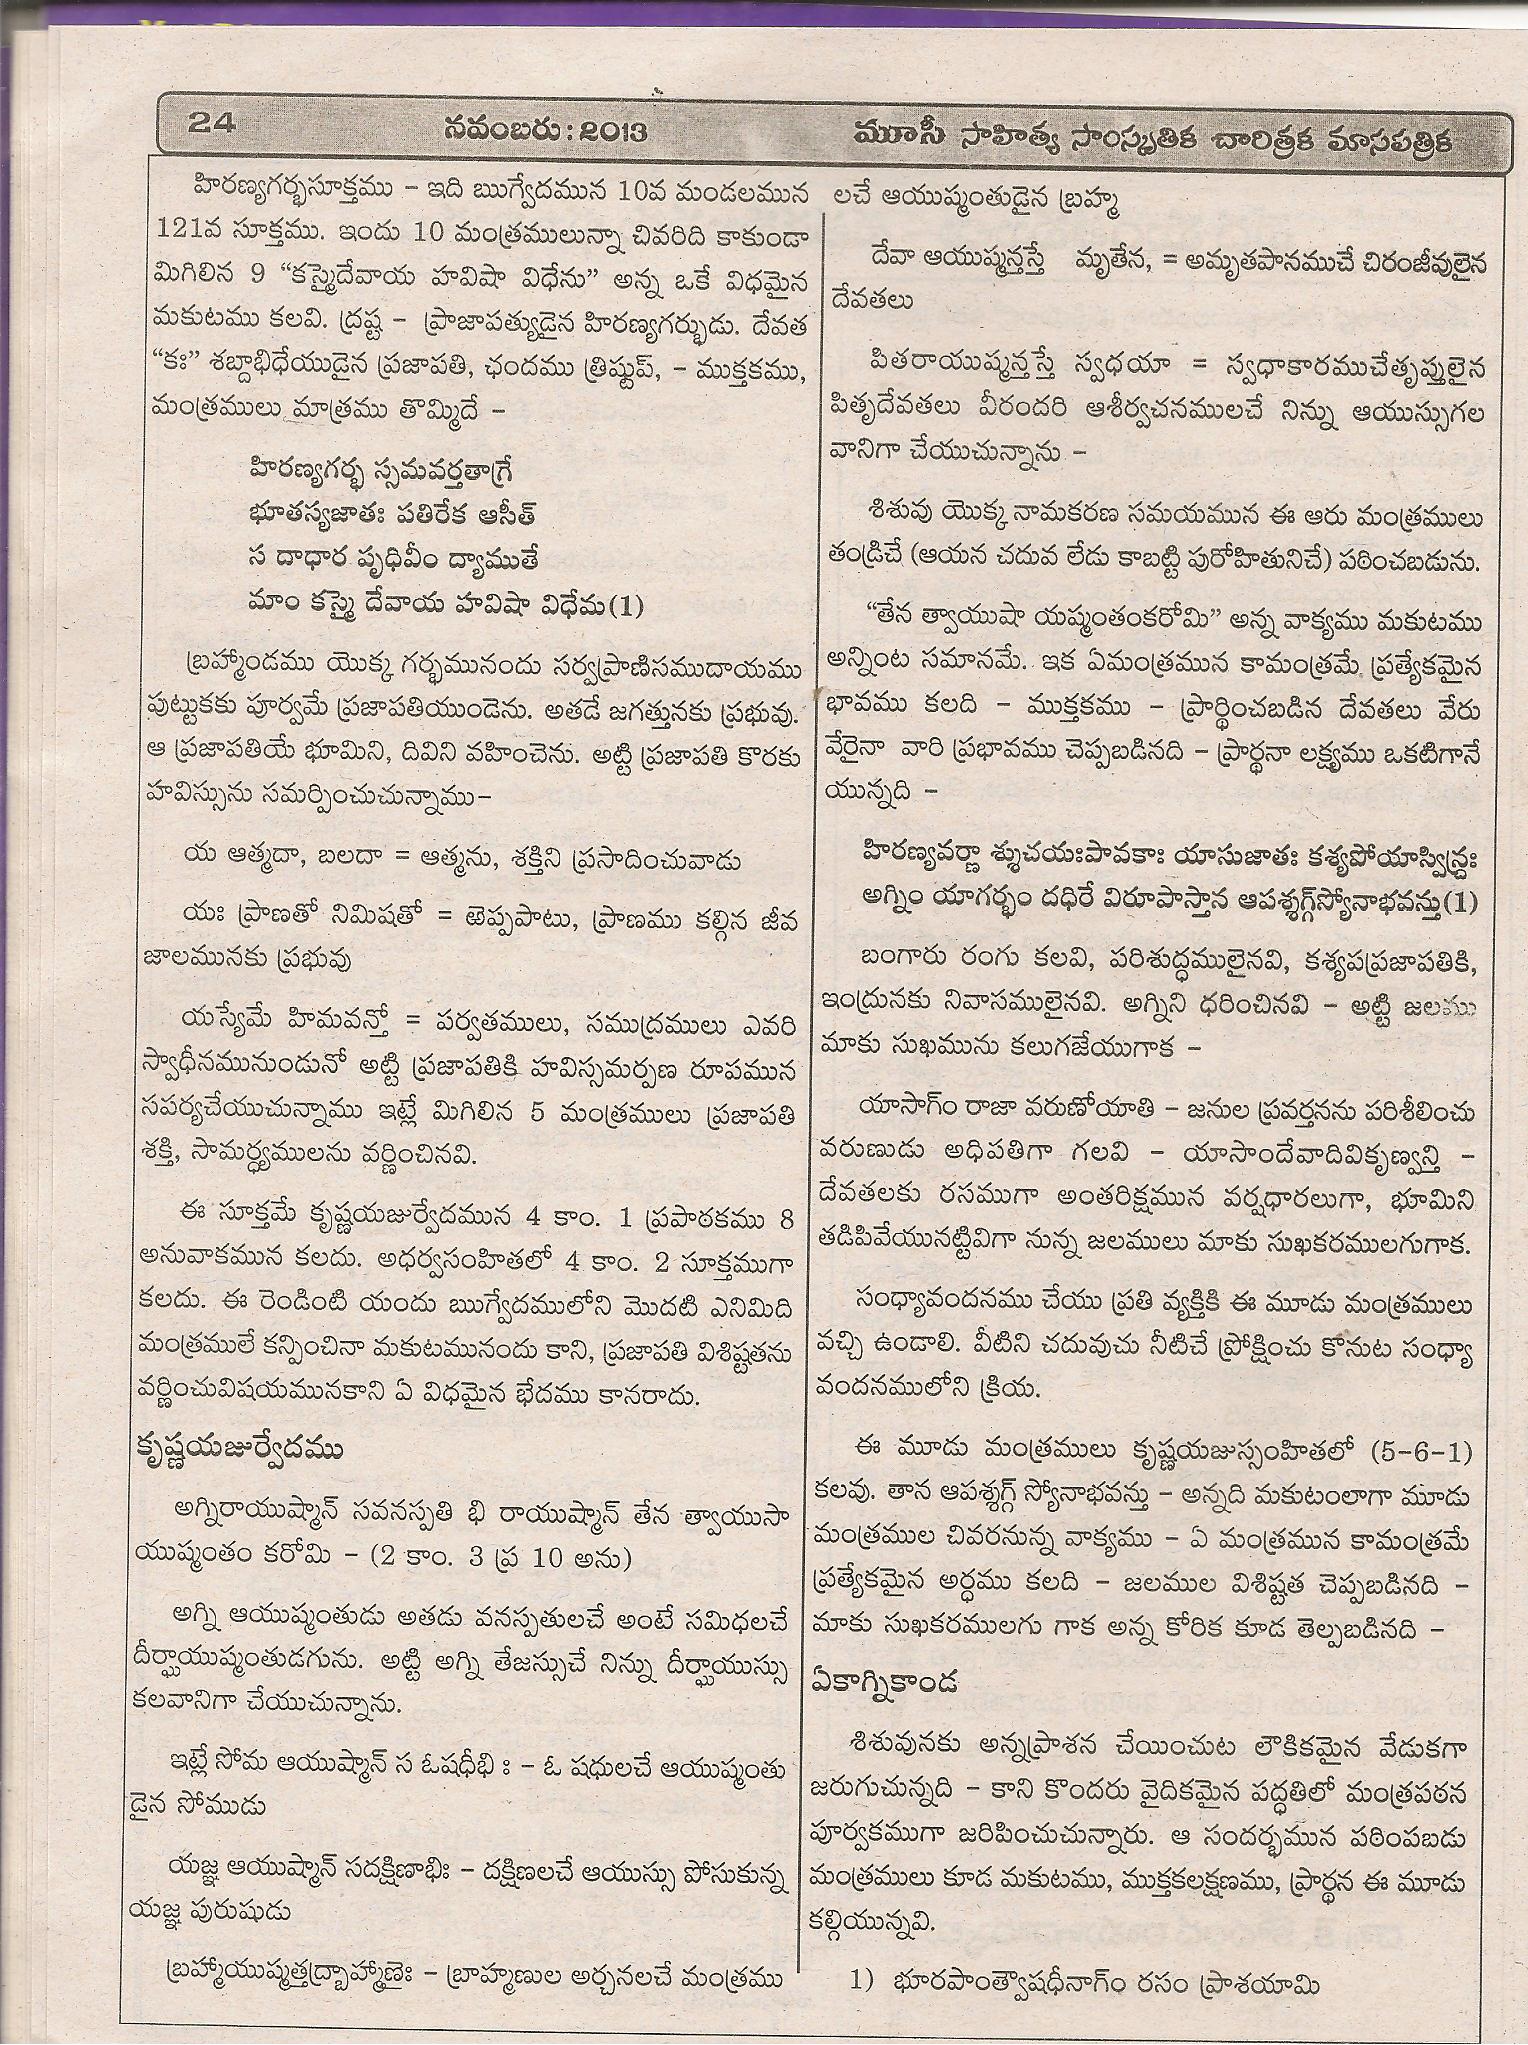 24
నవంబరు : 2013
మూసీ సాహిత్య సాంస్కృతిక చారిత్రక మాసపత్రిక
హిరణ్యగర్భసూక్తము – ఇది ఋగ్వేదమున 10వ మండలమున
121వ సూక్తము. ఇందు 10 మంత్రములున్నా చివరిది కాకుండా
మిగిలిన 9 “కస్మైదేవాయ హవిషా విధేను” అన్న ఒకే విధమైన
మకుటము కలవి. ద్రష్ట – ప్రాజాపత్యుడైన హిరణ్యగర్భుడు. దేవత
“కః” శబ్దాభిధేయుడైన ప్రజాపతి, ఛందము త్రిష్టుప్, – ముక్తకము,
మంత్రములు మాత్రము తొమ్మిదే –
హిరణ్యగర్భ స్సమవర్తతాగ్రే
భూతస్యజాతః పతిరేక ఆసీత్
స దాధార పృధివీం ద్యాముతే
మాం కస్మై దేవాయ హవిషా విధేమ(1)
బ్రహ్మాండము యొక్క గర్భమునందు సర్వప్రాణిసముదాయము
పుట్టుకకు పూర్వమే ప్రజాపతియుండెను. అతడే జగత్తునకు ప్రభువు.
ఆ ప్రజాపతియే భూమిని, దివిని వహించెను. అట్టి ప్రజాపతి కొరకు
హవిస్సును సమర్పించుచున్నాము–
య ఆత్మదా, బలదా = ఆత్మను, శక్తిని ప్రసాదించువాడు
యః ప్రాణతో నిమిషతో = ఱెప్పపాటు, ప్రాణము కల్గిన జీవ
జాలమునకు ప్రభువు
యస్యేమే హిమవన్తో = పర్వతములు, సముద్రములు ఎవరి
స్వాధీనమునుండునో అట్టి ప్రజాపతికి హవిస్సమర్పణ రూపమున
సపర్యచేయుచున్నాము ఇట్లే మిగిలిన 5 మంత్రములు ప్రజాపతి
శక్తి, సామర్థ్యములను వర్ణించినవి.
ఈ సూక్తమే కృష్ణయజుర్వేదమున 4 కాం. 1 ప్రపాఠకము 8
అనువాకమున కలదు. అధర్వసంహితలో 4 కాం. 2 సూక్తముగా
కలదు. ఈ రెండింటి యందు ఋగ్వేదములోని మొదటి ఎనిమిది
మంత్రములే కన్పించినా మకుటమునందు కాని, ప్రజాపతి విశిష్టతను
వర్ణించువిషయమునకాని ఏ విధమైన భేదము కానరాదు.
కృష్ణయజుర్వేదము
అగ్నిరాయుష్మాన్ సవనస్పతి భి రాయుష్మాన్ తేన త్వాయుసా
యుష్మంతం కరోమి – (2 కాం. 3 ప్ర 10 అను)
అగ్ని ఆయుష్మంతుడు అతడు వనస్పతులచే అంటే సమిధలచే
దీర్ఘాయుష్మంతుడగును. అట్టి అగ్ని తేజస్సుచే నిన్ను దీర్ఘాయుస్సు
కలవానిగా చేయుచున్నాను.
ఇట్లే సోమ ఆయుష్మాన్ స ఓషధీభి ః – ఓ షధులచే ఆయుష్మంతు
డైన సోముడు
యజ్ఞ ఆయుష్మాన్ సదక్షిణాభిః – దక్షిణలచే ఆయుస్సు పోసుకున్న
యజ్ఞ పురుషుడు
బ్రహ్మాయుష్మత్తద్బ్రాహ్మాణైః – బ్రాహ్మణుల అర్చనలచే మంత్రము
లచే ఆయుష్మంతుడైన బ్రహ్మ
దేవా ఆయుష్మన్తస్తే మృతేన, = అమృతపానముచే చిరంజీవులైన
దేవతలు
పితరాయుష్మన్తస్తే స్వధయా = స్వధాకారముచేతృప్తులైన
పితృదేవతలు వీరందరి ఆశీర్వచనములచే నిన్ను ఆయుస్సుగల
వానిగా చేయుచున్నాను –
శిశువు యొక్క నామకరణ సమయమున ఈ ఆరు మంత్రములు
తండ్రిచే (ఆయన చదువ లేడు కాబట్టి పురోహితునిచే) పఠించబడును.
“తేన త్వాయుషా యష్మంతంకరోమి” అన్న వాక్యము మకుటము
అన్నింట సమానమే. ఇక ఏమంత్రమున కామంత్రమే ప్రత్యేకమైన
భావము కలది – ముక్తకము – ప్రార్థించబడిన దేవతలు వేరు
వేరైనా వారి ప్రభావము చెప్పబడినది – ప్రార్థనా లక్ష్యము ఒకటిగానే
యున్నది –
హిరణ్యవర్ణా శ్శుచయఃపావకాః యాసుజాతః కశ్యపోయాస్విన్ద్రః
అగ్నిం యాగర్భం దధిరే విరూపాస్తాన ఆపశ్శగ్గ్‌స్యోనాభవన్తు(1)
బంగారు రంగు కలవి, పరిశుద్ధములైనవి, కశ్యపప్రజాపతికి,
ఇంద్రునకు నివాసములైనవి. అగ్నిని ధరించినవి – అట్టి జలము
మాకు సుఖమును కలుగజేయుగాక –
యాసాగ్ం రాజా వరుణోయాతి – జనుల ప్రవర్తనను పరిశీలించు
వరుణుడు అధిపతిగా గలవి – యాసాందేవాదివికృణ్వన్తి –
దేవతలకు రసముగా అంతరిక్షమున వర్షధారలుగా, భూమిని
తడిపివేయునట్టివిగా నున్న జలములు మాకు సుఖకరములగుగాక.
సంధ్యావందనము చేయు ప్రతి వ్యక్తికి ఈ మూడు మంత్రములు
వచ్చి ఉండాలి. వీటిని చదువుచు నీటిచే ప్రోక్షించు కొనుట సంధ్యా
వందనములోని క్రియ.
ఈ మూడు మంత్రములు కృష్ణయజుస్సంహితలో (5-6-1)
కలవు. తాన ఆపశ్శగ్గ్ స్యోనాభవన్తు – అన్నది మకుటంలాగా మూడు
మంత్రముల చివరనున్న వాక్యము – ఏ మంత్రమున కామంత్రమే
ప్రత్యేకమైన అర్ధము కలది – జలముల విశిష్టత చెప్పబడినది –
మాకు సుఖకరములగు గాక అన్న కోరిక కూడ తెల్పబడినది –
ఏకాగ్నికాండ
శిశువునకు అన్నప్రాశన చేయించుట లౌకికమైన వేడుకగా
జరుగుచున్నది – కాని కొందరు వైదికమైన పద్ధతిలో మంత్రపఠన
పూర్వకముగా జరిపించుచున్నారు. ఆ సందర్భమున పఠింపబడు
మంత్రములు కూడ మకుటము, ముక్తకలక్షణము, ప్రార్థన ఈ మూడు
కల్గియున్నవి.
1) భూరపాంత్వౌషధీనాగ్ం రసం ప్రాశయామి